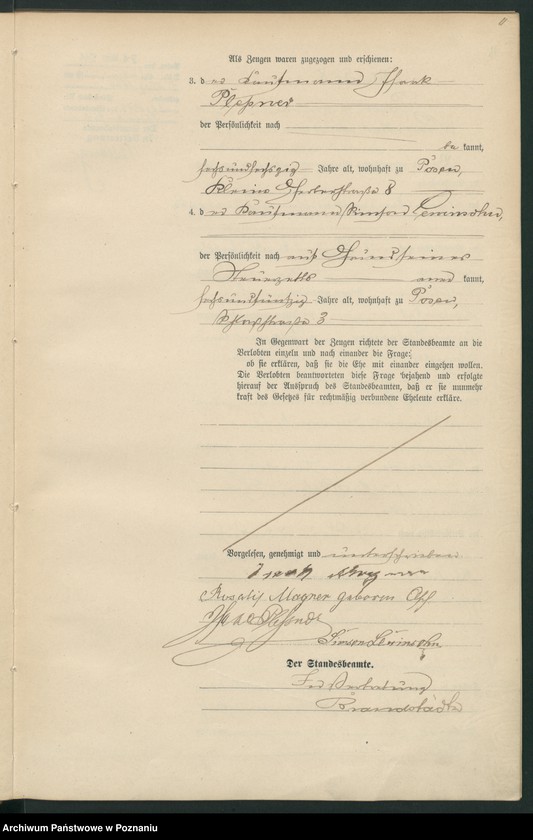 Als Zeugen waren zugezogen und erschienen:
3. d er Kaufmann Isaak
Pleßner
der Persönlichkeit nach
be kannt,
sechsundsechszig Jahre alt, wohnhaft zu Posen,
Kleine Gerberstraße 8
4. d er Kaufmann Simson Lewinsohn,
der Persönlichkeit nach auf Grund seines
Steuerzettels aner kannt,
sechsundfünfzig Jahre alt, wohnhaft zu Posen,
Schloßstraße 3
In Gegenwart der Zeugen richtete der Standesbeamte an die
Verlobten einzeln und nach einander die Frage:
ob sie erklären, daß sie die Ehe mit einander eingehen wollen.
Die Verlobten beantworteten diese Frage bejahend und erfolgte
hierauf der Ausspruch des Standesbeamten, daß er sie nunmehr
kraft des Gesetzes für rechtmäßig verbundene Eheleute erkläre.
Vorgelesen, genehmigt und unterschrieben
Isaak
Rosalie Magner geboren
Simson Lewinsohn
Der Standesbeamte.
In Vertretung
Brandstädter
Archiwum Państwowe w Poznaniu